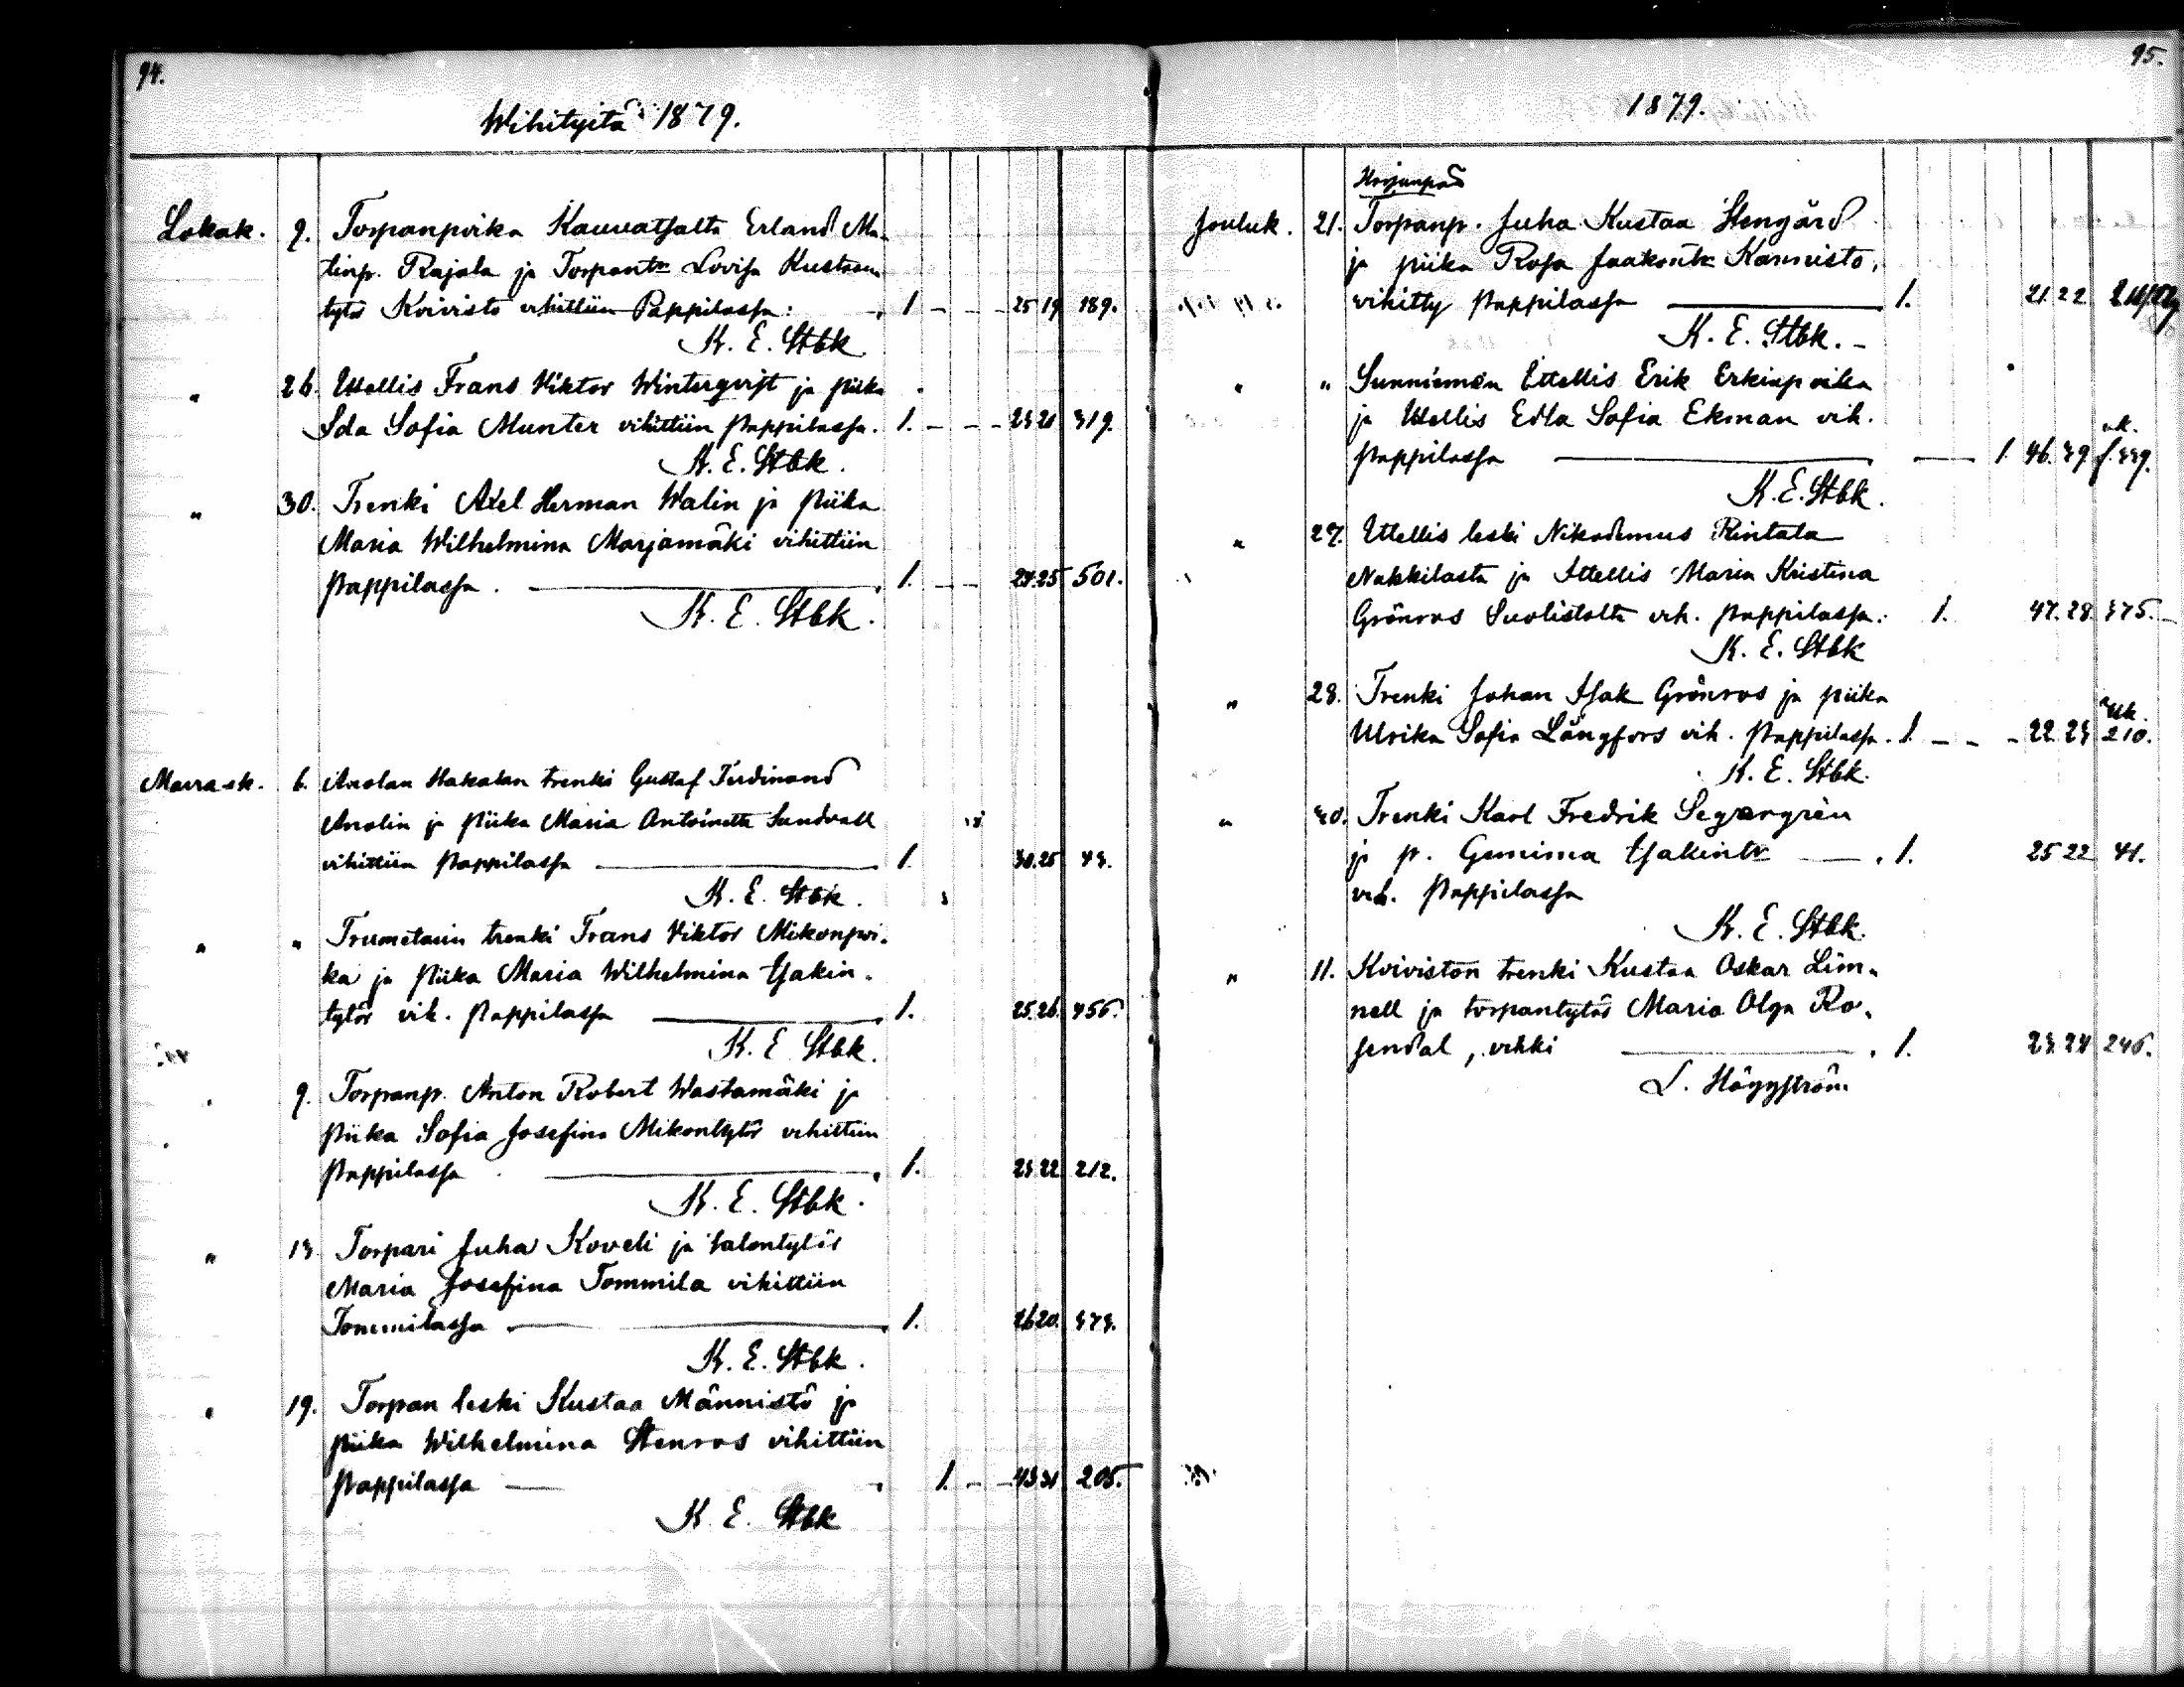 94.
Wihityitä 1879.
Lokak. 9. Torpanpoika Kauvatsalta Erland Ma-
tinp. Rajala ja Torpantr Lovisa Kustaan
tytär Koivisto vihittiin Pappilassa: 1 25 19 189.
K. E. Stbk.
" 26. Ittellis Frans Viktor Winterqvist ja piika
Ida Sofia Munter vihittiin pappilassa. 1. 23 21 319.
K. E. Stbk.
" 30. Trenki Axel Herman Walin ja piika
Maria Wilhelmina Marjamäki vihittiin
pappilassa. 1. 24.25 501.
K. E. Stbk.
Marrask. 6. Anolan Hakalan trenki Gustaf Ferdinand
Anolin ja piika Maria Antoinetta Sundvall
vihittiin pappilassa 1. 30.25 43.
K. E. Stbk.
" " trenki Frans Viktor Mikonpoi-
ka ja piika Maria Wilhelmina Isakin-
tytär vih. pappilassa 1. 25.26. 456.
K. E. Stbk.
" 9. Torpanp. Anton Robert Wastamäki ja
piika Sofia Josefina Mikontytär vihittiin
pappilassa 1. 23 22 212.
K. E. Stbk.
" 13. Torpari Juha Koveli ja talontytär
Maria Josefina Tommila vihittiin
Tommilassa 1. 26 20. 373.
K. E. Stbk.
" 19. Torpan leski Kustaa Männistö ja
piika Wilhelmina Stenros vihittiin
pappilassa 1. 43 31 205.
K. E. Stbk
95.
1879.
Harjunpää
Jouluk. 21. Torpanp. Juha Kustaa Stengård
ja piika Rosa Jaakontr Kannisto,
vihitty pappilassa 1. 21 22
K. E. Stbk.
" " Sunniemen Ittellis Erik Erkinpoika
ja Ittellis Edla Sofia Ekman vih.
pappilassa 1. 46. 39 339.
K. E. Stbk.
" 27. Ittellis leski Nikodemus Rintala
Nakkilasta ja Ittellis Maria Kristina
Grönros Suolistolta vih. pappilassa. 1. 47. 28. 375.
K. E. Stbk
" 28. Trenki Johan Isak Grönros ja piika
Ulrika Sofia Långfors vih. pappilassa. 1. 22 23 210.
K. E. Stbk.
" 30. Trenki Karl Fredrik Segergrén
ja p. Gemima Isakintr 1. 25 22 41.
vih. pappilassa
K. E. Stbk.
" 11. Koiviston trenki Kustaa Oskar Lim-
nell ja torpantytär Maria Olga Ro-
sendal, vihki 1. 23. 24 246.
L. Häggström